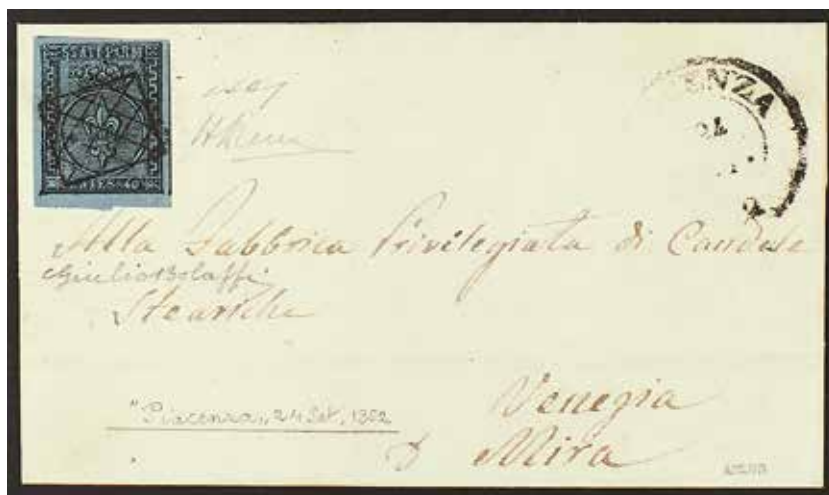 STATI PARM
CENTES. 40
ENZA
24
Alla Fabbrica Privilegiata di Candele
Giulio Bolaffi
Steariche
"Piacenza,, 24 Set. 1852
Venezia
Mira